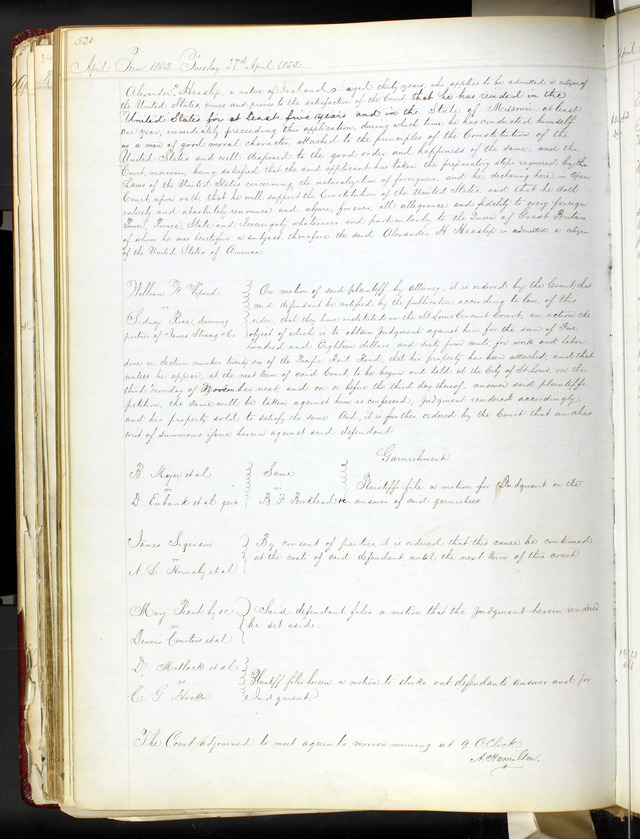 520
April Term 1852. Tuesday 27th April 1852
Alexander H. Heaslip, a native of Ireland, aged thirty years, who applies to be admitted a citizen of
the United States, comes and proves to the satisfaction of the Court, that he has resided in the
United States for at least five years and in the State of Missouri at least
one year, immediately preceeding this application, during which time he has conducted himself
as a man of good moral character, attached to the principles of the Constitution of the
United States and well disposed to the good order and happiness of the same; and the
Court moreover, being satisfied that the said applicant has taken the preparatory steps required by the
Laws of the United States concerning the naturalization of foreigners, and he declaring here, in Open
Court, upon oath, that he will support the Constitution of the United States, and that he doth
entirely and absolutely renounce and abjure, forever, all allegiance and fidelity to every foreign
Power, Prince, State and Sovereignty whatsoever and particularly to the Queen of Great Britain
of whom he was heretofore a subject, therefore the said Alexander H Heaslip is admitted a citizen
of the United States of America
William W
vs
Sidney Rice, surviving
partner of James Strang & Co.
On motion of said plaintiff by attorney, it is ordered by the Court that
said defendant be notified by the publication according to law, of this
order, that they have instituted in the St Louis Circuit Court, an action the
object of which is to obtain Judgment against him for the sum of Five
hundred and Eighteen dollars and sixty four cents, for work and labor
done on Section number twenty six of the Pacific Rail Road, that his property has been attached, and that
unless he appear, at the next term of said Court to be begun and held at the City of St Louis, on the
third Monday of November next and on or before the third day thereof, answer said plaintiffs
petition, the same will be taken against him as confessed, Judgment rendered accordingly,
and his property sold to satisfy the same. And, it is further ordered by the Court that an alias
writ of summons issue herein against said defendant.
Garnishment
B. Meyer et al
vs
D. Eubank et al
Same
vs
B. F. &c
Plaintiff file a motion for Judgment on the
answer of said garnishee
James Sigerson
vs
N. L. Hornsby et al
By consent of parties, it is ordered that this cause be continued
at the costs of said defendant, until the next term of this court
Mary by &c
vs
Dennis et al
Said defendant files a motion that the Judgment herein rendered
be set aside.
D. Matlack et al
vs
C. G. Hooker
Plaintiff files herein a motion to strike out defendants answer and for
Judgment.
The Court adjourned to meet again to morrow morning at 9 OClock
A. Hamilton.